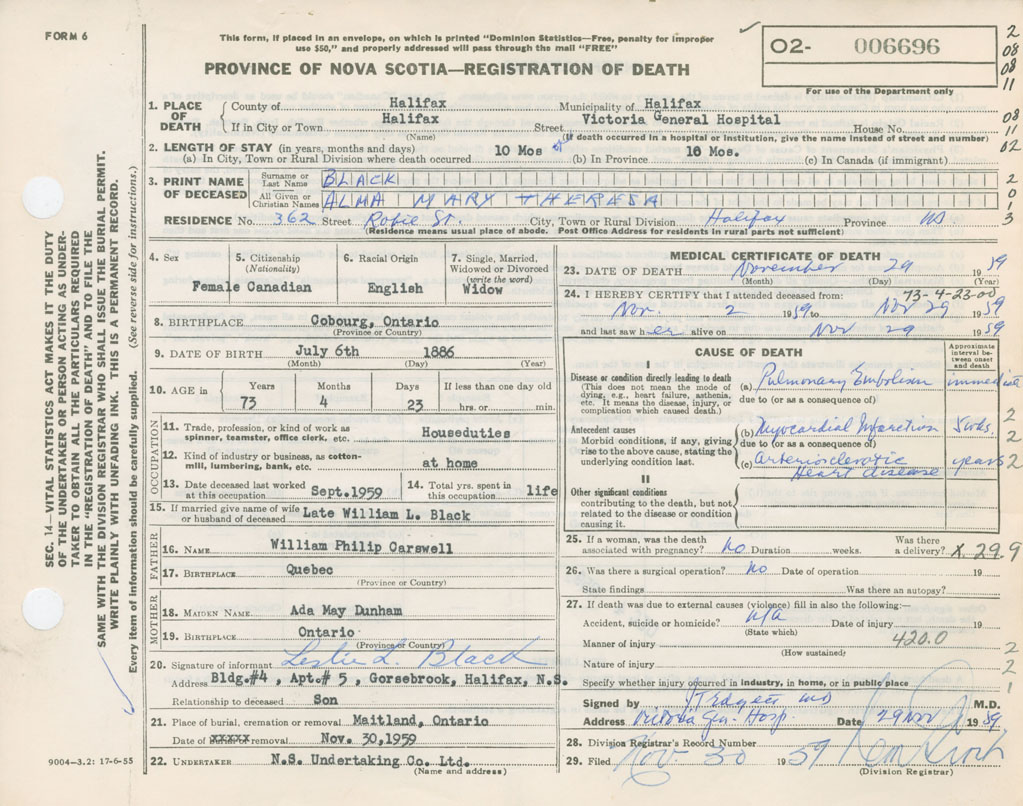 FORM 6
This form, if placed in an envelope, on which is printed "Dominion Statistics—Free, penalty for improper
use $50," and properly addressed will pass through the mail "FREE"
PROVINCE OF NOVA SCOTIA—REGISTRATION OF DEATH
O2- 006696
For use of the Department only
2
08
08
11
08
11
02
2
0
1
3
1. PLACE OF DEATH
County of Halifax Municipality of Halifax
If in City or Town Halifax Street Victoria General Hospital House No.
(Name) (If death occurred in a hospital or institution, give the name instead of street and number)
2. LENGTH OF STAY (in years, months and days)
(a) In City, Town or Rural Division where death occurred 10 Mos (b) In Province 10 Mos. (c) In Canada (if immigrant)
3. PRINT NAME OF DECEASED
Surname or Last Name BLACK
All Given or Christian Names ALMA MARY THERESA
RESIDENCE No. 362 Street Robie St. City, Town or Rural Division Halifax Province NS
(Residence means usual place of abode. Post Office Address for residents in rural parts not sufficient)
4. Sex
Female
5. Citizenship
(Nationality)
Canadian
6. Racial Origin
English
7. Single, Married,
Widowed or Divorced
(write the word)
Widow
8. BIRTHPLACE Cobourg, Ontario
(Province or Country)
9. DATE OF BIRTH July 6th 1886
(Month) (Day) (Year)
10. AGE in
Years Months Days If less than one day old
73 4 23 hrs. or min.
OCCUPATION
11. Trade, profession, or kind of work as
spinner, teamster, office clerk, etc. Houseduties
12. Kind of industry or business, as cotton-
mill, lumbering, bank, etc. at home
13. Date deceased last worked
at this occupation Sept.1959
14. Total yrs. spent in
this occupation life
15. If married give name of wife
or husband of deceased Late William L. Black
FATHER
16. NAME William Philip Carswell
17. BIRTHPLACE Quebec
(Province or Country)
MOTHER
18. MAIDEN NAME Ada May Dunham
19. BIRTHPLACE Ontario
(Province or Country)
20. Signature of informant Leslie L. Black
Address Bldg.#4, Apt.# 5, Gorsebrook, Halifax, N.S.
Relationship to deceased Son
21. Place of burial, cremation or removal Maitland, Ontario
Date of removal Nov. 30,1959
22. UNDERTAKER N.S. Undertaking Co. Ltd.
(Name and address)
MEDICAL CERTIFICATE OF DEATH
23. DATE OF DEATH November 29 1959
(Month) (Day) (Year)
73-4-23-00
24. I HEREBY CERTIFY that I attended deceased from:
Nov. 2 1959 to Nov 29 1959
and last saw her alive on Nov 29 1959
CAUSE OF DEATH
Approximate
interval be-
tween onset
and death
I
Disease or condition directly leading to death
(This does not mean the mode of
dying, e.g., heart failure, asthenia,
etc. It means the disease, injury, or
complication which caused death.)
(a) Pulmonary Embolism immediate
due to (or as a consequence of)
Antecedent causes
Morbid conditions, if any, giving
rise to the above cause, stating the
underlying condition last.
(b) Myocardial Infarction 5 wks.
due to (or as a consequence of)
(c) Arteriosclerotic years
Heart disease
2
2
2
II
Other significant conditions
contributing to the death, but not
related to the disease or condition
causing it.
25. If a woman, was the death Was there
associated with pregnancy? No Duration weeks. a delivery? X. 29.9
26. Was there a surgical operation? No Date of operation 19
State findings Was there an autopsy?
27. If death was due to external causes (violence) fill in also the following:—
Accident, suicide or homicide? N/A Date of injury 19
(State which)
Manner of injury 420.0
(How sustained)
Nature of injury
Specify whether injury occurred in industry, in home, or in public place
2
2
1
Signed by M.D.
Address Victoria Gen. Hosp. Date 29 Nov 1959.
28. Division Registrar's Record Number
29. Filed Nov. 30 1959
(Division Registrar)
SEC. 14—VITAL STATISTICS ACT MAKES IT THE DUTY
OF THE UNDERTAKER OR PERSON ACTING AS UNDER-
TAKER TO OBTAIN ALL THE PARTICULARS REQUIRED
IN THE "REGISTRATION OF DEATH" AND TO FILE THE
SAME WITH THE DIVISION REGISTRAR WHO SHALL ISSUE THE BURIAL PERMIT.
WRITE PLAINLY WITH UNFADING INK. THIS IS A PERMANENT RECORD.
Every item of information should be carefully supplied. (See reverse side for instructions.)
9004-3.2: 17-6-55